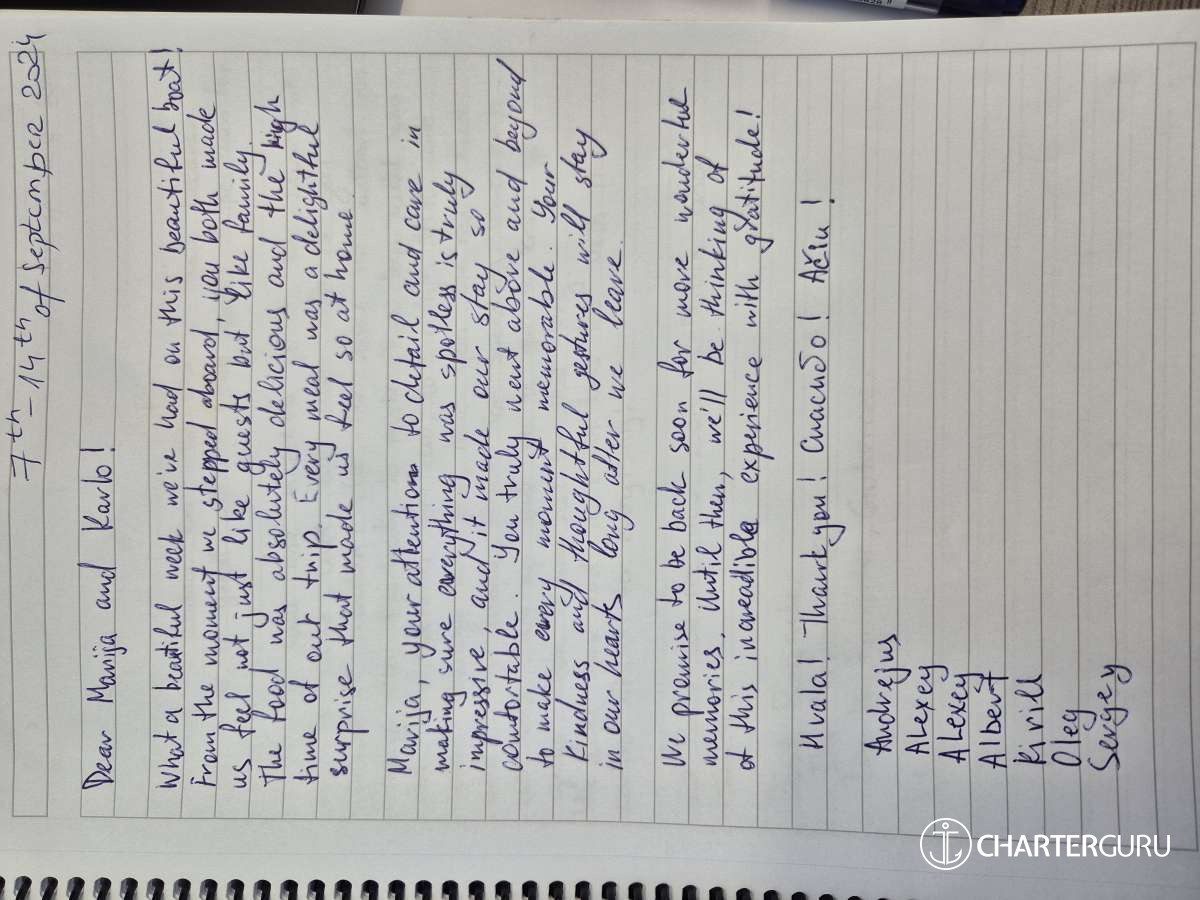 7th - 14th
of September 2024
Dear Marija and Karlo!
What a beautiful week we've had on this beautiful boat!
From the moment we stepped aboard, you both made
us feel not just like guests but like family.
The food was absolutely delicious and the high
time of our trip. Every meal was a delightful
surprise that made us feel so at home.
Marija, your attention to detail and care in
making sure everything was spotless is truly
impressive, and it made our stay so
comfortable. You truly went above and beyond
to make every moment memorable. Your
kindness and thoughtful gestures will stay
in our hearts long after we leave.
We promise to be back soon for more wonderful
memories. Until then, we'll be thinking of
of this increadible experience with gratitude!
Hvala! Thank you! Спасибо! Ačiu!
Andrejus
Alexey
Alexey
Albert
Kirill
Oleg
Sergey
CHARTERGURU